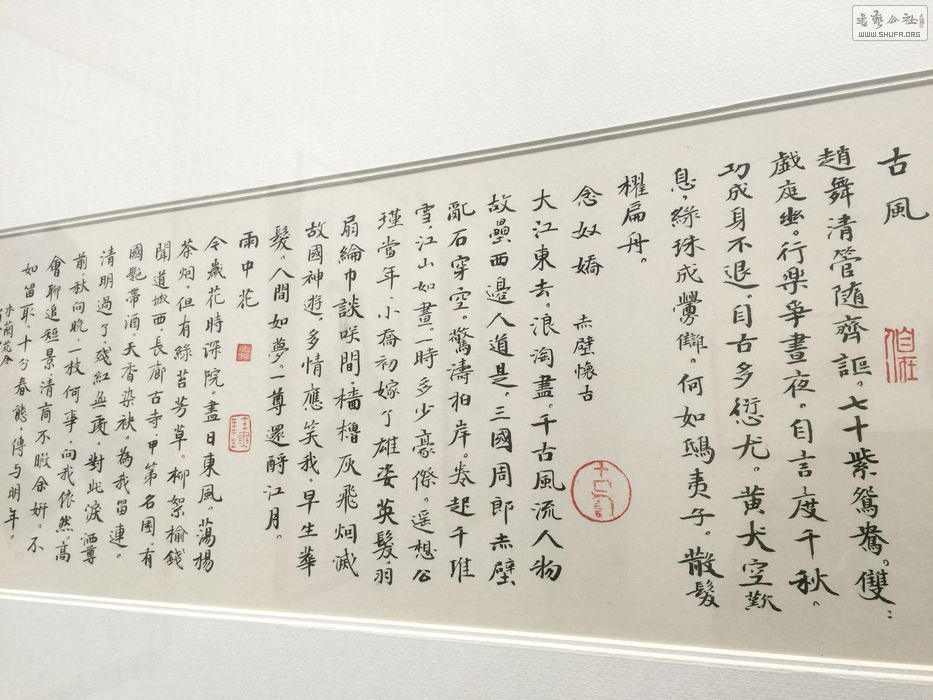 古風
趙舞清管隨齊謳。七十紫鴛鴦。雙：
戲庭幽。行樂爭晝夜。自言度千秋。
功成身不退。自古多愆尤。黃犬空歎
息。綠珠成釁讎。何如鴟夷子。散髮
櫂扁舟。
念奴嬌 赤壁懷古
大江東去。浪淘盡。千古風流人物
故壘西邊人道是。三國周郎赤壁
亂石穿空。驚濤拍岸。卷起千堆
雪。江山如畫。一時多少豪傑。遥想公
瑾當年。小喬初嫁了雄姿英髮。羽
扇綸巾談咲間。檣櫓灰飛烟滅
故國神遊。多情應笑我。早生華
髮。人間如夢。一尊還酹江月。
雨中花
今歲花時深院。盡日東風。蕩揚
茶烟。但有綠苔芳草。柳絮榆錢
聞道城西。長廊古寺。甲第名園。有
國艷帶酒天香染袂。為我留連。
清明過了。殘紅無處。對此淚洒尊
前。秋向晚。一枝何事。向我依然。高
會聊追短景清商不暇余妍。不
如留取。十分春態。傳与明年。
木蘭花令
WWW.SHUFA.ORG